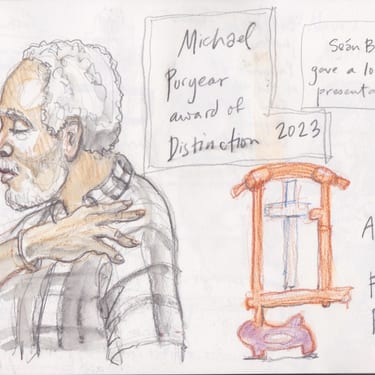 Michael
Puryear
award of
Distinction 2023
Seán B
gave a lo
presenta
A
F